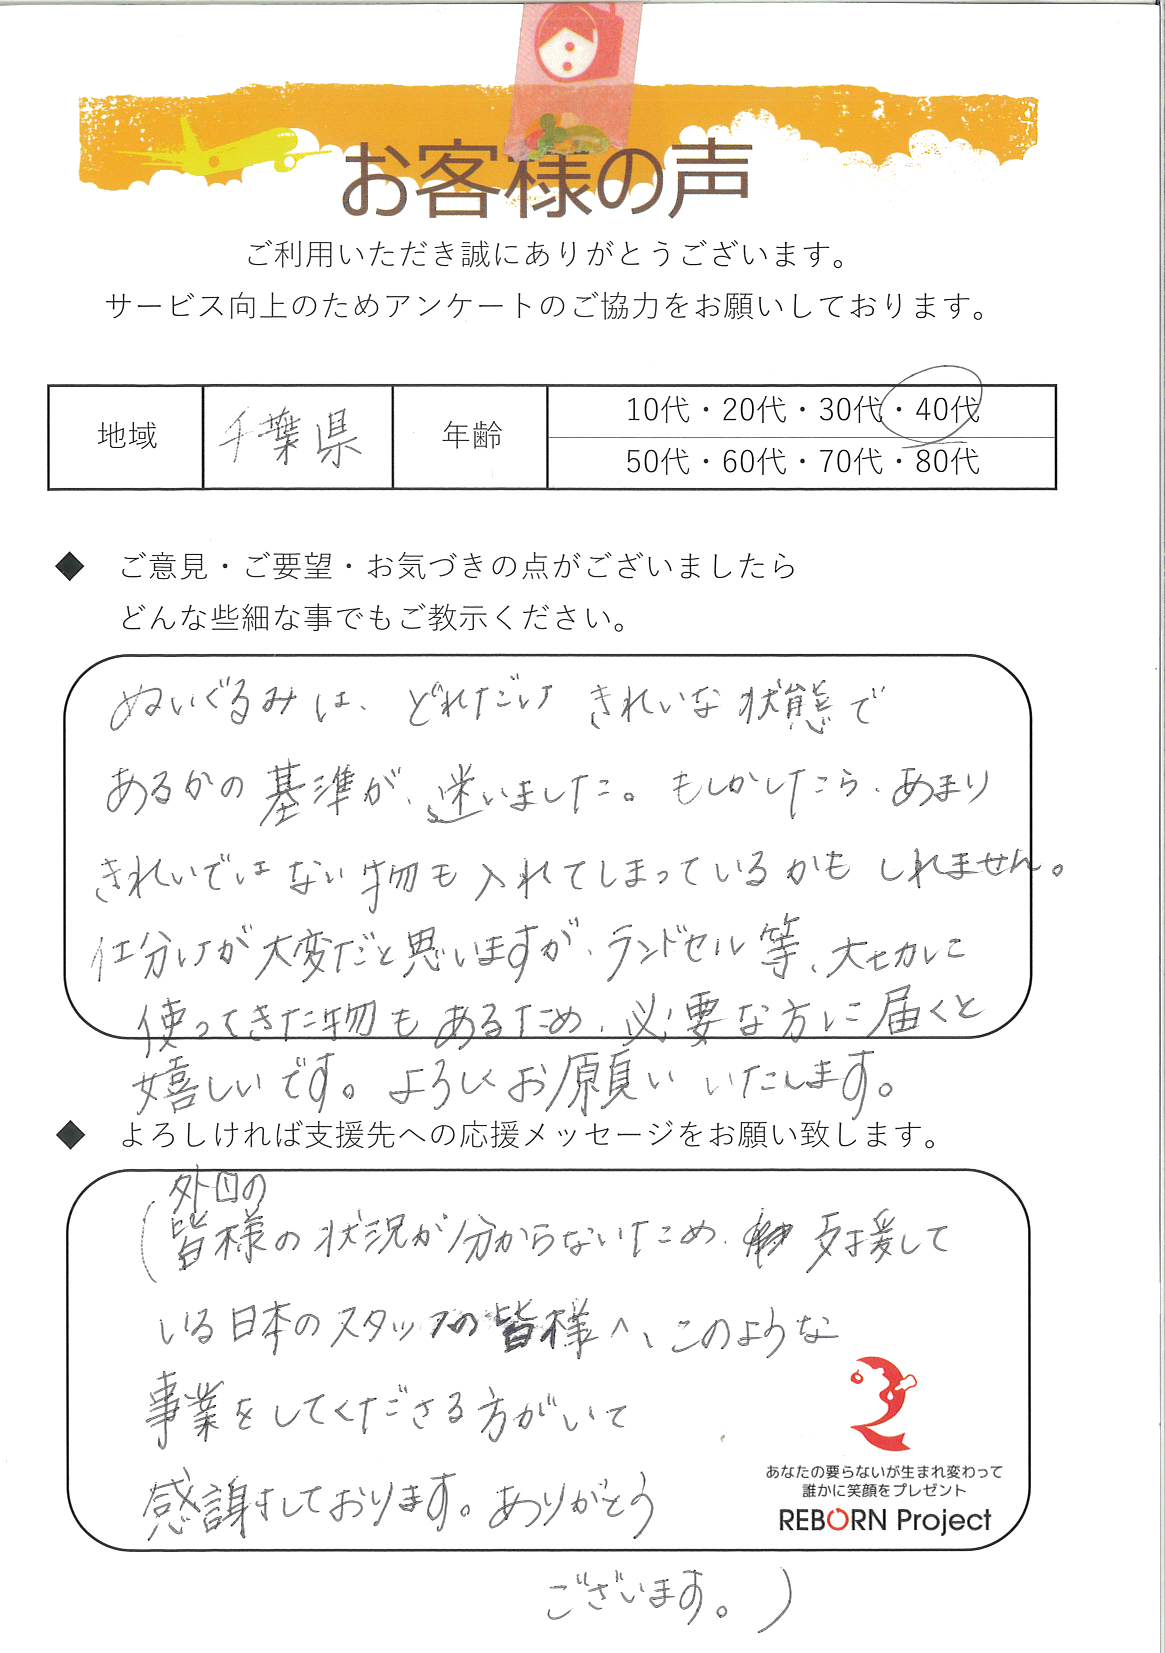 お客様の声
ご利用いただき誠にありがとうございます。
サービス向上のためアンケートのご協力をお願いしております。
地域 千葉県 年齢 10代・20代・30代・40代
50代・60代・70代・80代
◆ ご意見・ご要望・お気づきの点がございましたら
どんな些細な事でもご教示ください。
ぬいぐるみは、どれだけ きれいな状態で
あるかの基準が、迷いました。もしかしたら、あまり
きれいではない物も入れてしまっているかもしれません。
仕分けが大変だと思いますが、ランドセル等、大切に
使ってきた物もあるため、必要な方に届くと
嬉しいです。よろしくお願いいたします。
◆ よろしければ支援先への応援メッセージをお願い致します。
外国の
(皆様の状況が分からないため、支援して
いる日本のスタッフの皆様へ、このような
事業をしてくださる方がいて
感謝しております。ありがとう
ございます。)
あなたの要らないが生まれ変わって
誰かに笑顔をプレゼント
REBORN Project